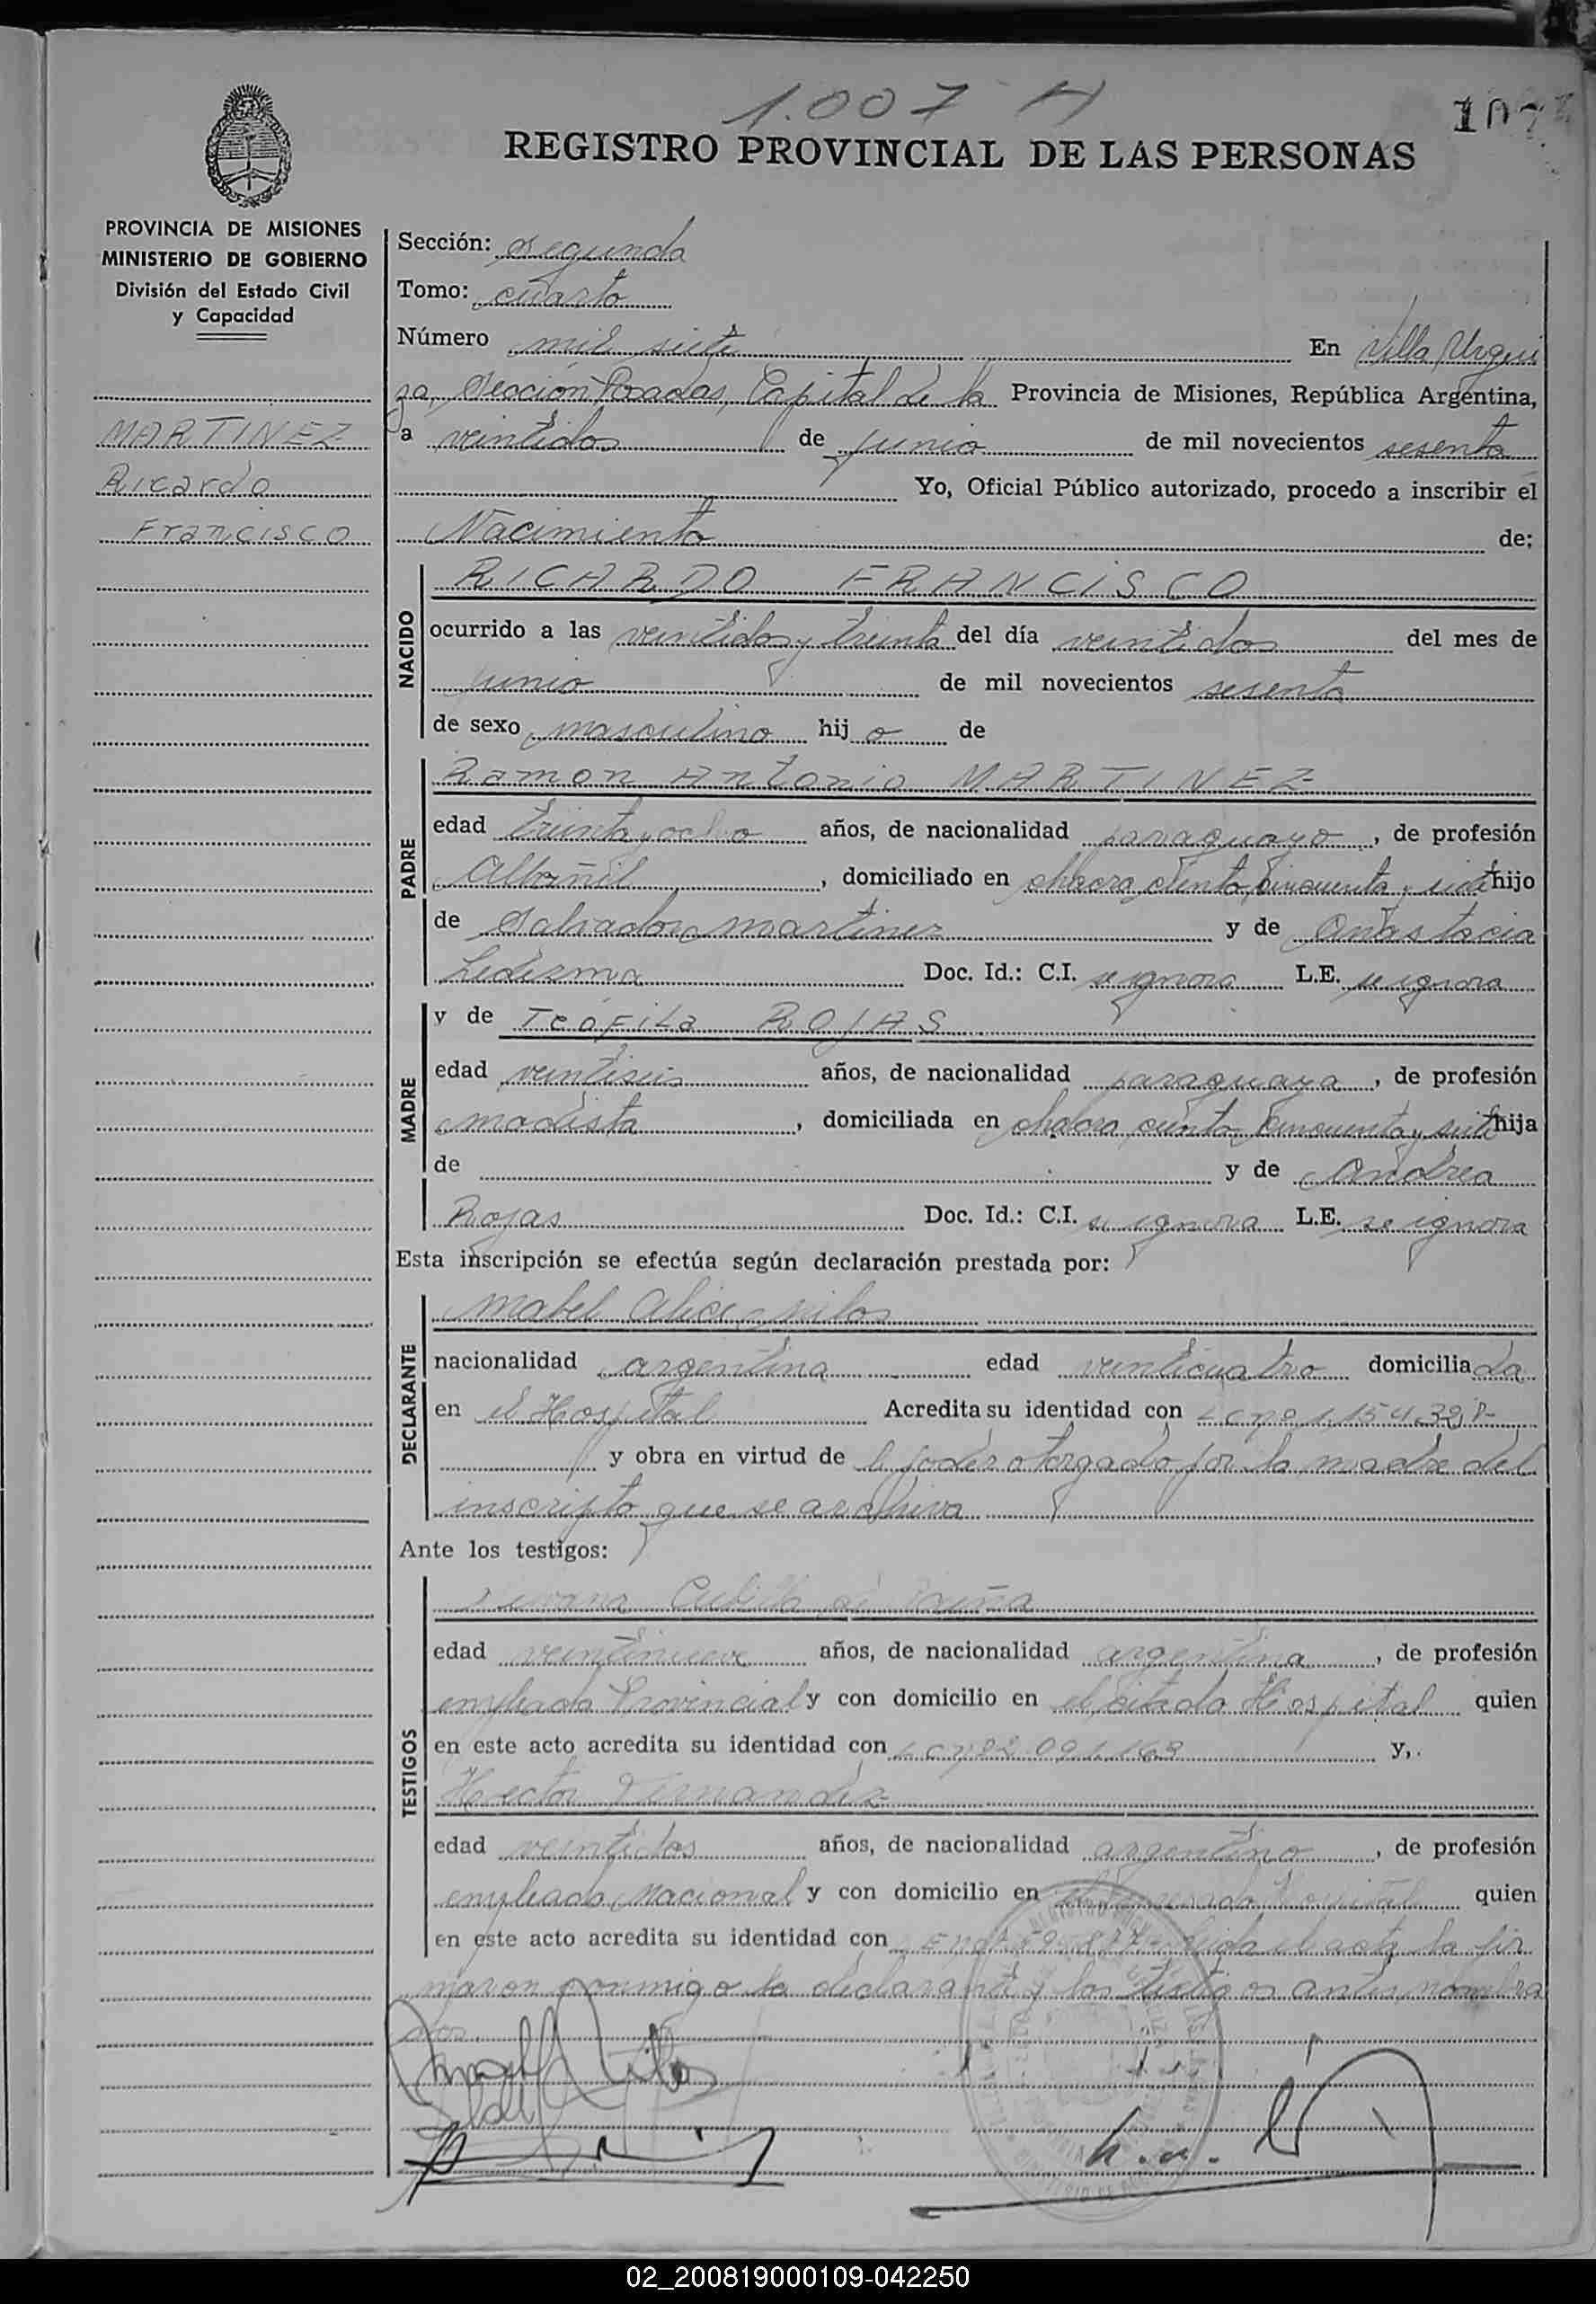 1.007
107
REGISTRO PROVINCIAL DE LAS PERSONAS
PROVINCIA DE MISIONES
MINISTERIO DE GOBIERNO
División del Estado Civil
y Capacidad
MARTINEZ
Ricardo
Francisco
Sección: segunda
Tomo: cuarto
Número mil siete En Villa Urqui
za, Sección Posadas, Capital de la Provincia de Misiones, República Argentina,
a veintidos de junio de mil novecientos sesenta
Yo, Oficial Público autorizado, procedo a inscribir el
Nacimiento de:
NACIDO
RICARDO FRANCISCO
ocurrido a las veintidos y treinta del día veintidos del mes de
junio de mil novecientos sesenta
de sexo masculino hijo de
PADRE
Ramon Antonio MARTINEZ
edad treinta y ocho años, de nacionalidad paraguayo, de profesión
Albañil, domiciliado en chacra ciento cincuenta y siete hijo
de Salvador martinez y de Anastacia
Ledesma Doc. Id.: C.I. se ignora L.E. se ignora
MADRE
y de Teófila ROJAS
edad veintiseis años, de nacionalidad paraguaya, de profesión
modista, domiciliada en chacra ciento cincuenta y siete hija
de y de Andrea
Rojas Doc. Id.: C.I. se ignora L.E. se ignora
Esta inscripción se efectúa según declaración prestada por:
DECLARANTE
Mabel Alice
nacionalidad argentina edad veinticuatro domiciliada
en el Hospital Acredita su identidad con
y obra en virtud de el poder otorgado por la madre del
inscripto que se archiva
Ante los testigos:
TESTIGOS
edad veintinueve años, de nacionalidad argentina, de profesión
empleada Provincial y con domicilio en el citado Hospital quien
en este acto acredita su identidad con y,
Hector Fernandez
edad veintidos años, de nacionalidad argentino, de profesión
empleado Nacional y con domicilio en el Hospital quien
en este acto acredita su identidad con Leida el acta la fir
maron conmigo la declarante y los testigos antes nombra
dos.
02_200819000109-042250